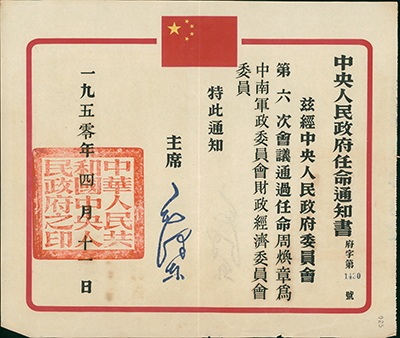 中央人民政府任命通知書
府字第1430號
茲經中央人民政府委員會
第六次會議通過任命周煥章爲
中南軍政委員會財政經濟委員會
委員
特此通知
主席
毛澤東
一九五〇年四月十一日
中華人民共
和國中央人
民政府之印
925